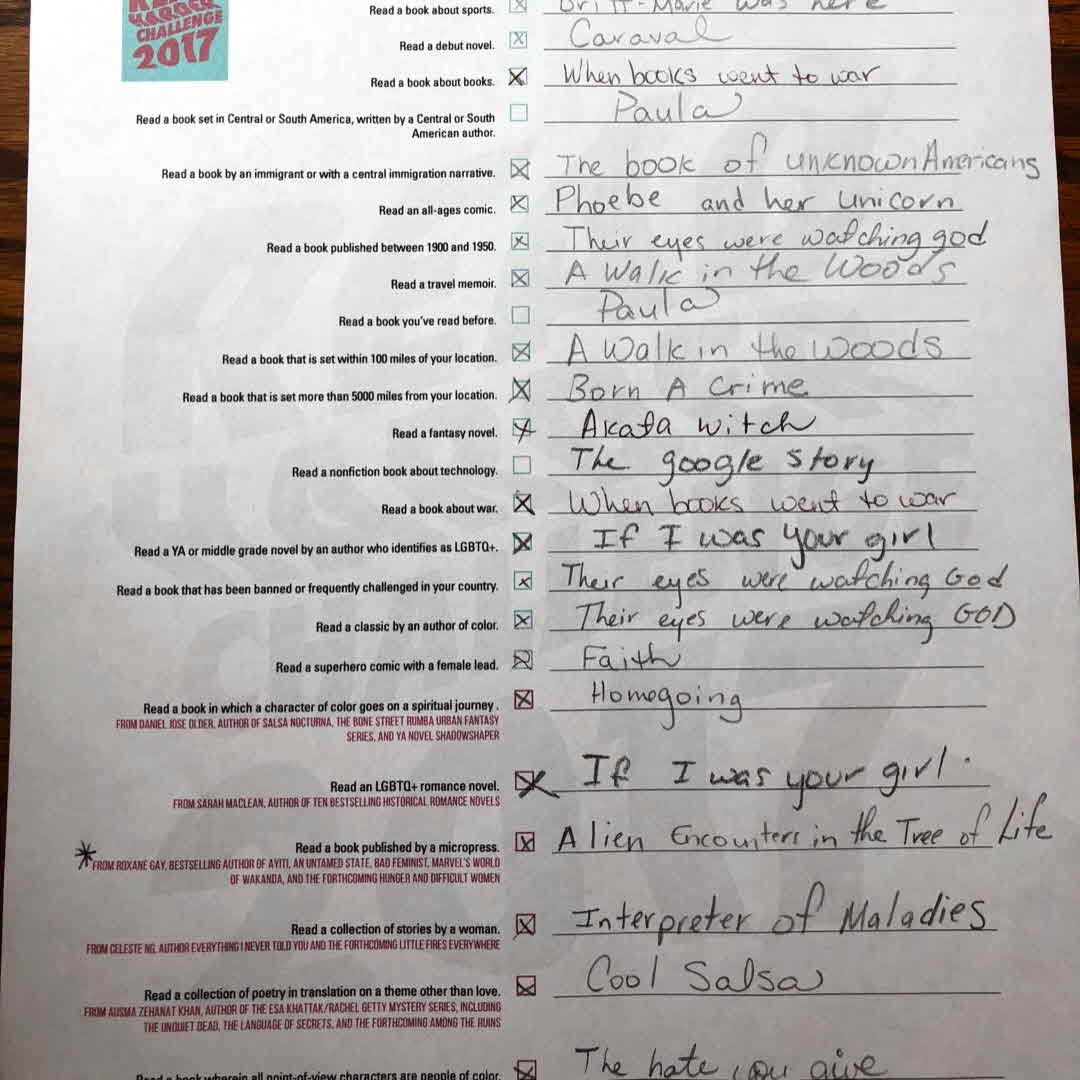 HARDER
CHALLENGE
2017
Read a book about sports. Britt-Marie was here
Read a debut novel. Caraval
Read a book about books. When books went to war
Read a book set in Central or South America, written by a Central or South Paula
American author.
Read a book by an immigrant or with a central immigration narrative. The book of unknown Americans
Read an all-ages comic. Phoebe and her unicorn
Read a book published between 1900 and 1950. Their eyes were watching god
Read a travel memoir. A Walk in the Woods
Read a book you've read before. Paula
Read a book that is set within 100 miles of your location. A Walk in the Woods
Read a book that is set more than 5000 miles from your location. Born A Crime
Read a fantasy novel. Akata witch
Read a nonfiction book about technology. The google story
Read a book about war. When books went to war
Read a YA or middle grade novel by an author who identifies as LGBTQ+. If I was your girl
Read a book that has been banned or frequently challenged in your country. Their eyes were watching God
Read a classic by an author of color. Their eyes were watching GOD
Read a superhero comic with a female lead. Faith
Read a book in which a character of color goes on a spiritual journey. Homegoing
FROM DANIEL JOSE OLDER, AUTHOR OF SALSA NOCTURNA, THE BONE STREET RUMBA URBAN FANTASY
SERIES, AND YA NOVEL SHADOWSHAPER
Read an LGBTQ+ romance novel. If I was your girl.
FROM SARAH MACLEAN, AUTHOR OF TEN BESTSELLING HISTORICAL ROMANCE NOVELS
Read a book published by a micropress. Alien Encounters in the Tree of Life
* FROM ROXANE GAY, BESTSELLING AUTHOR OF AYITI, AN UNTAMED STATE, BAD FEMINIST, MARVEL'S WORLD
OF WAKANDA, AND THE FORTHCOMING HUNGER AND DIFFICULT WOMEN
Read a collection of stories by a woman. Interpreter of Maladies
FROM CELESTE NG, AUTHOR EVERYTHING I NEVER TOLD YOU AND THE FORTHCOMING LITTLE FIRES EVERYWHERE
Read a collection of poetry in translation on a theme other than love. Cool Salsa
FROM AUSMA ZEHANAT KHAN, AUTHOR OF THE ESA KHATTAK/RACHEL GETTY MYSTERY SERIES, INCLUDING
THE UNQUIET DEAD, THE LANGUAGE OF SECRETS, AND THE FORTHCOMING AMONG THE RUINS
Read a book wherein all point-of-view characters are people of color. The hate you give